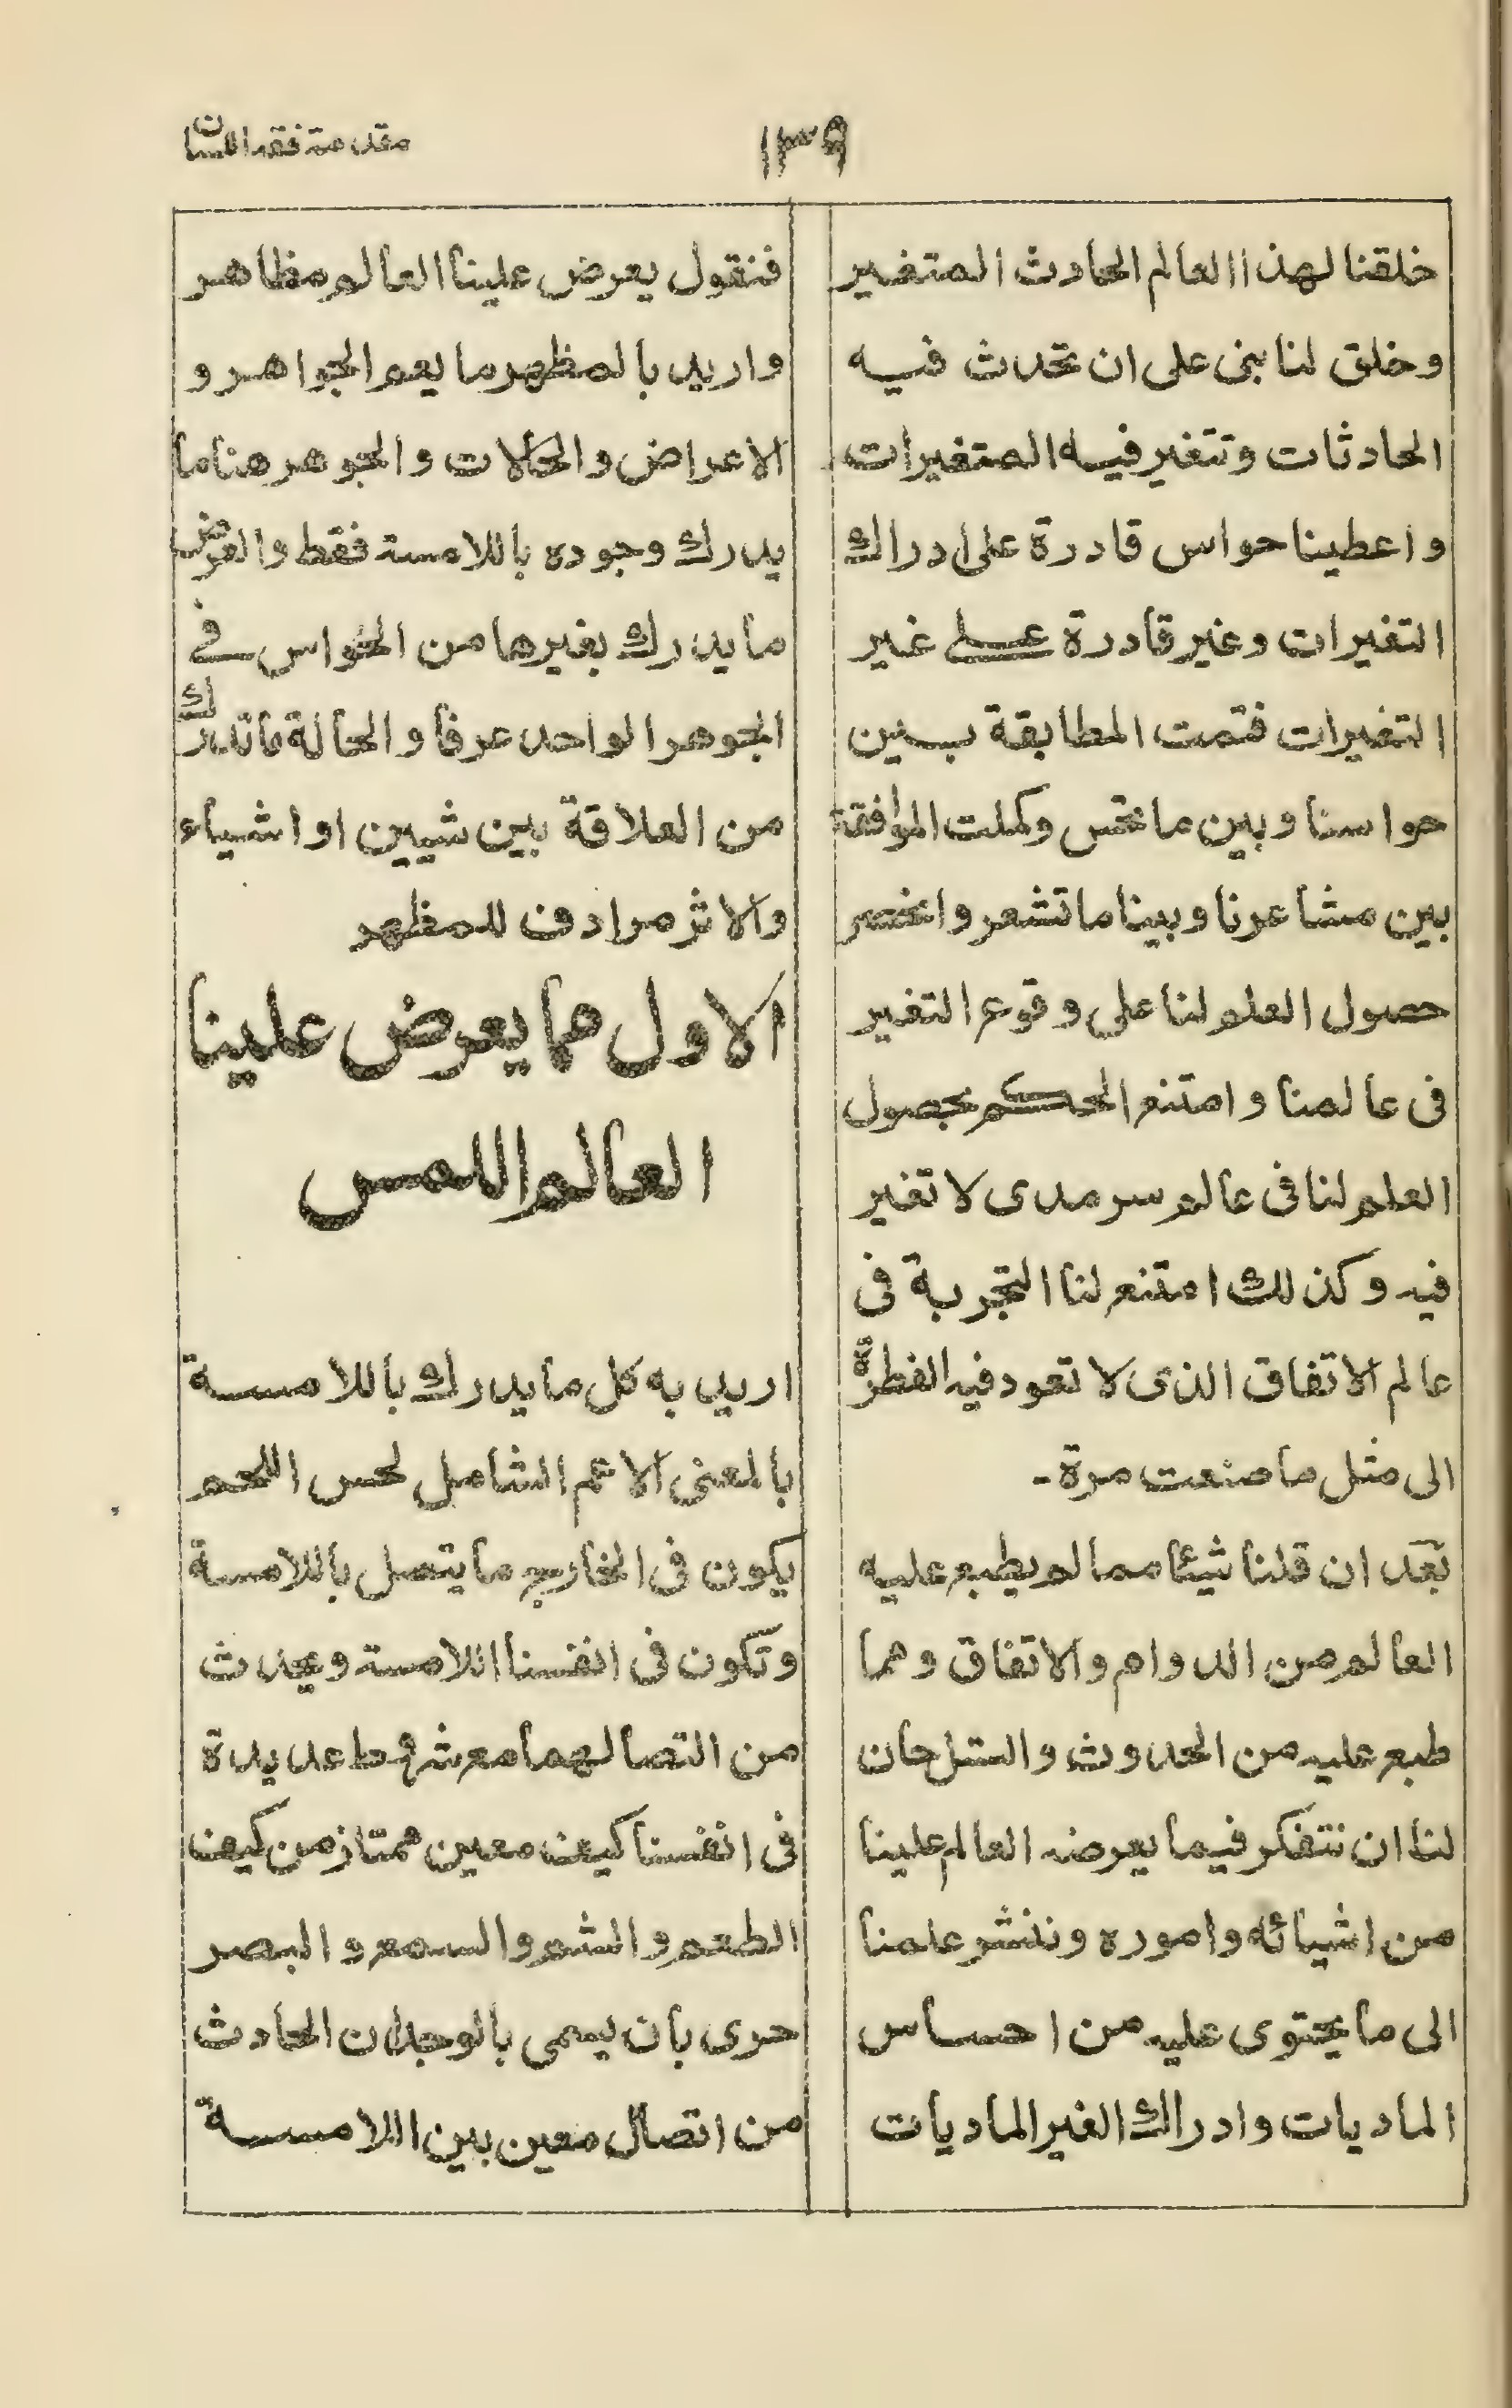 ١٣٩
مقدمة فقه اللسان
خلقنا لهذا العالم الحادث المتغير
وخلق لنا بنى على ان تحدث فيه
الحادثات وتتغير فيه المتغيرات
واعطينا حواس قادرة على ادراك
التغيرات وغير قادرة على غير
التغيرات فتمت المطابقة بين
حواسنا وبين ما نحس وكملت الموافقة
بين مشاعرنا وبينا ما تشعر وانحصر
حصول العلم لنا على وقوع التغير
فى عالمنا وامتنع الحكم بحصول
العلم لنا فى عالم سرمدى لا تغير
فيه وكذلك امتنع لنا التجربة فى
عالم الاتفاق الذى لا تعود فيه الفطرة
الى مثل ما صنعت مرة ـ
بعد ان قلنا شيئا مما لم يطبع عليه
العالم من الدوام والاتفاق ومما
طبع عليه من الحدوث والستل حان
لنا ان نتفكر فيما يعرضه العالم علينا
من اشيائه واموره وننشر علمنا
الى ما يحتوى عليه من احساس
الماديات وادراك الغير الماديات
فنقول يعرض علينا العالم مظاهر
واريد بالمظهر ما يعم الجواهر و
الاعراض والحالات والجوهر هنا ما
يدرك وجوده باللامسة فقط والعرض
ما يدرك بغيرها من الحواس فى
الجوهر الواحد عرفا والحالة ما تدرك
من العلاقة بين شيين او اشياء
والاثر مرادف للمظهر
الاول مما يعرض علينا
العالم اللمس
اريد به كل ما يدرك باللامسة
بالمعنى الاعم الشامل لحس اللحم
يكون فى الخارج ما يتصل باللامسة
وتكون فى انفسنا اللامسة ويحدث
من اتصالهما مع شروط عديدة
فى انفسنا كيف معين ممتاز من كيف
الطعم والشم والسمع والبصر
حرى بان يسمى بالوجدان الحادث
من اتصال معين بين اللامسة